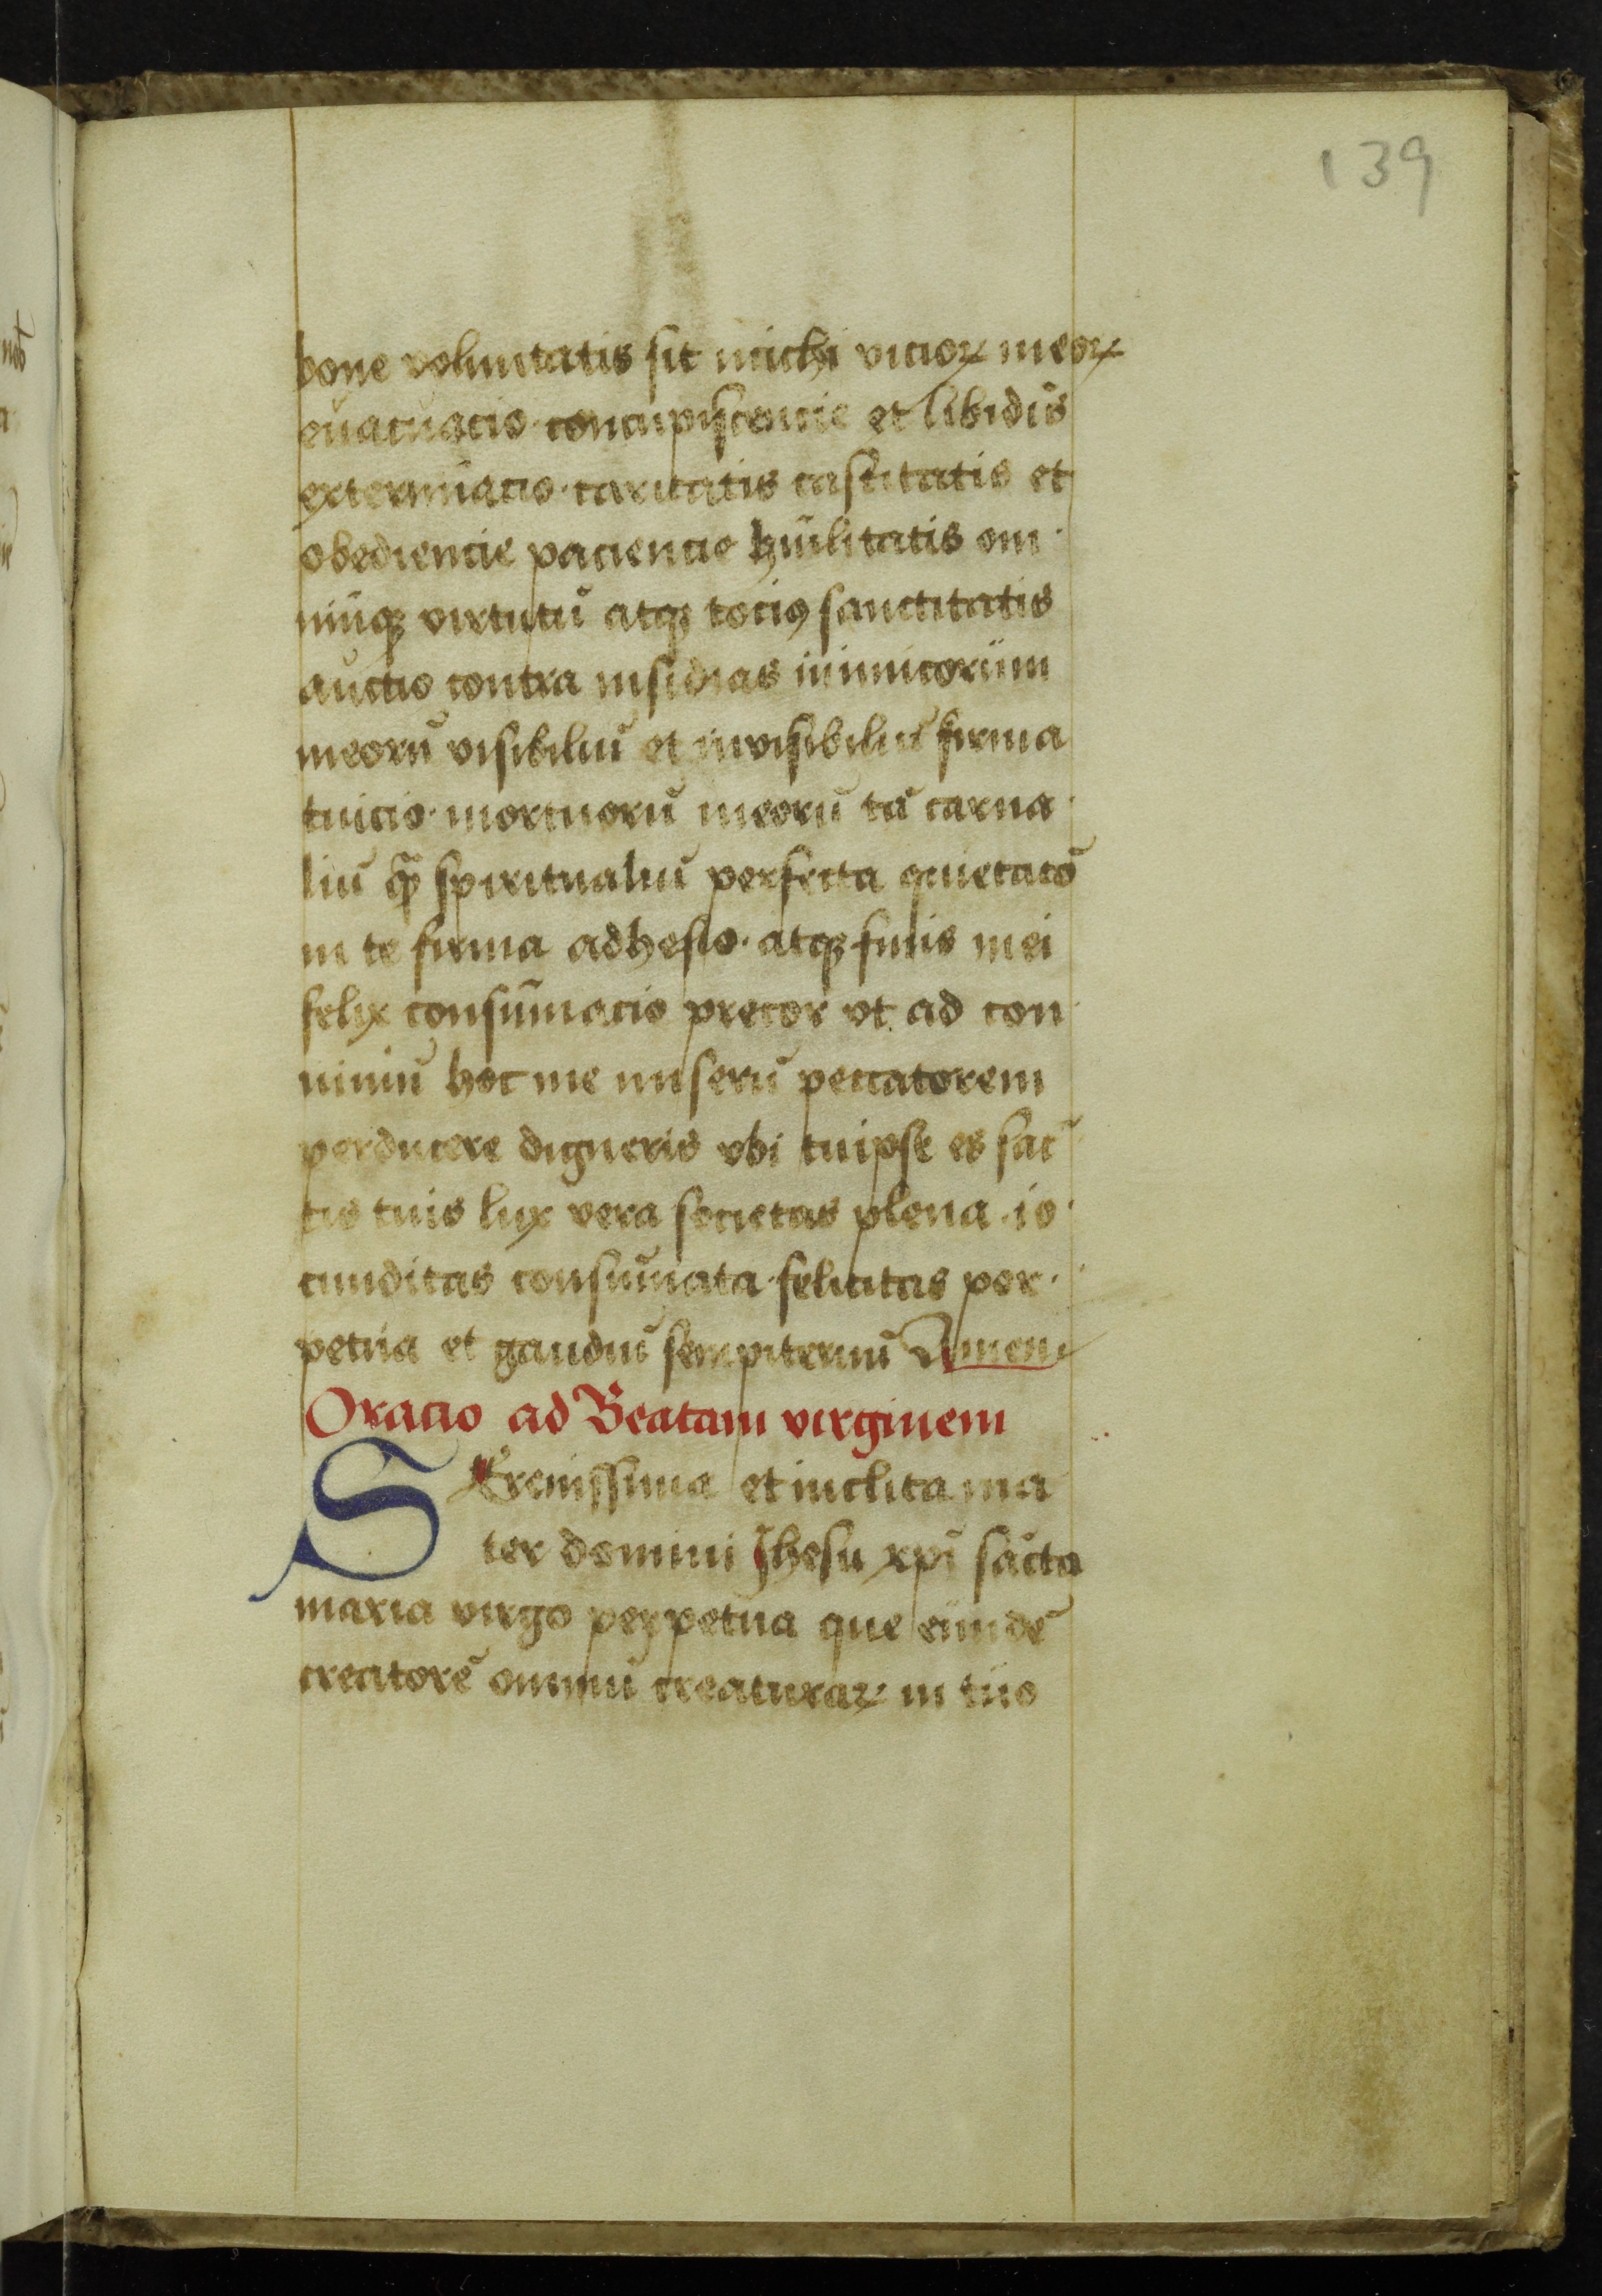 139
bone voluntatis sit michi vicioꝝ meoꝝ
euacuacio concupiscencie et libidīs
extermīacio caritatis castitatis et
obediencie paciencie hūilitatis om
niūqꝫ virtutū atqꝫ tociꝰ sanctitatis
auctio contra insidias inimicorum
meorū visibiliū et invisibiliū firma
tuicio mortuorū meorū tā carna
liū qͣ̄ spiritualiū perfecta quietatō
in te firma adhesio atqꝫ finis mei
felix consūmacio precor vt ad con
uiuiū hoc me miserū peccatorem
perducere digneris vbi tuipse es sāc
tis tuis lux vera societas plena io
cunditas consūmata felicitas per
petua et gaudiū sempiternū Amen
Oracio ad Beatam virginem
SErenissima et inclita ma
ter domini Jhesu xp̄i sācta
maria virgo perpetua que eundē
creatorē omniū creaturaꝝ in tuo